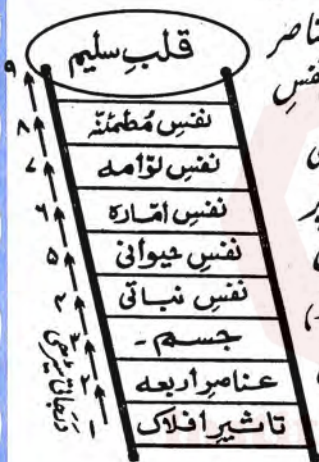 قلبِ سلیم
نفسِ مُطمئنّہ
نفسِ لوّامہ
نفسِ امّارہ
نفسِ حیوانی
نفسِ نباتی
جسم ۔
عناصرِ اربعہ
تاثیرِ افلاک
۹
۸
۷
۶
۵
۴
۳
۲
۱
ناصر
نفسِ